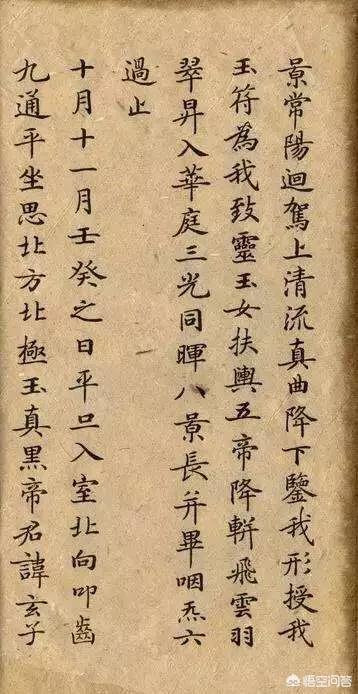 景常陽迴駕上清流真曲降下鑒我形授我
玉符為我致靈玉女扶輿五帝降軿飛雲羽
翠昇入華庭三光同暉八景長并畢咽炁六
過止
十月十一月壬癸之日平旦入室北向叩齒
九通平坐思北方北極玉真黑帝君諱玄子
悟空问答